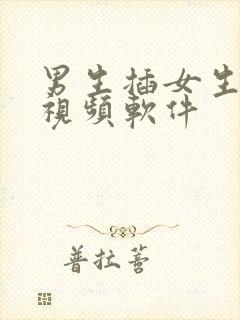 男生插女生
視頻軟件
普拉薝